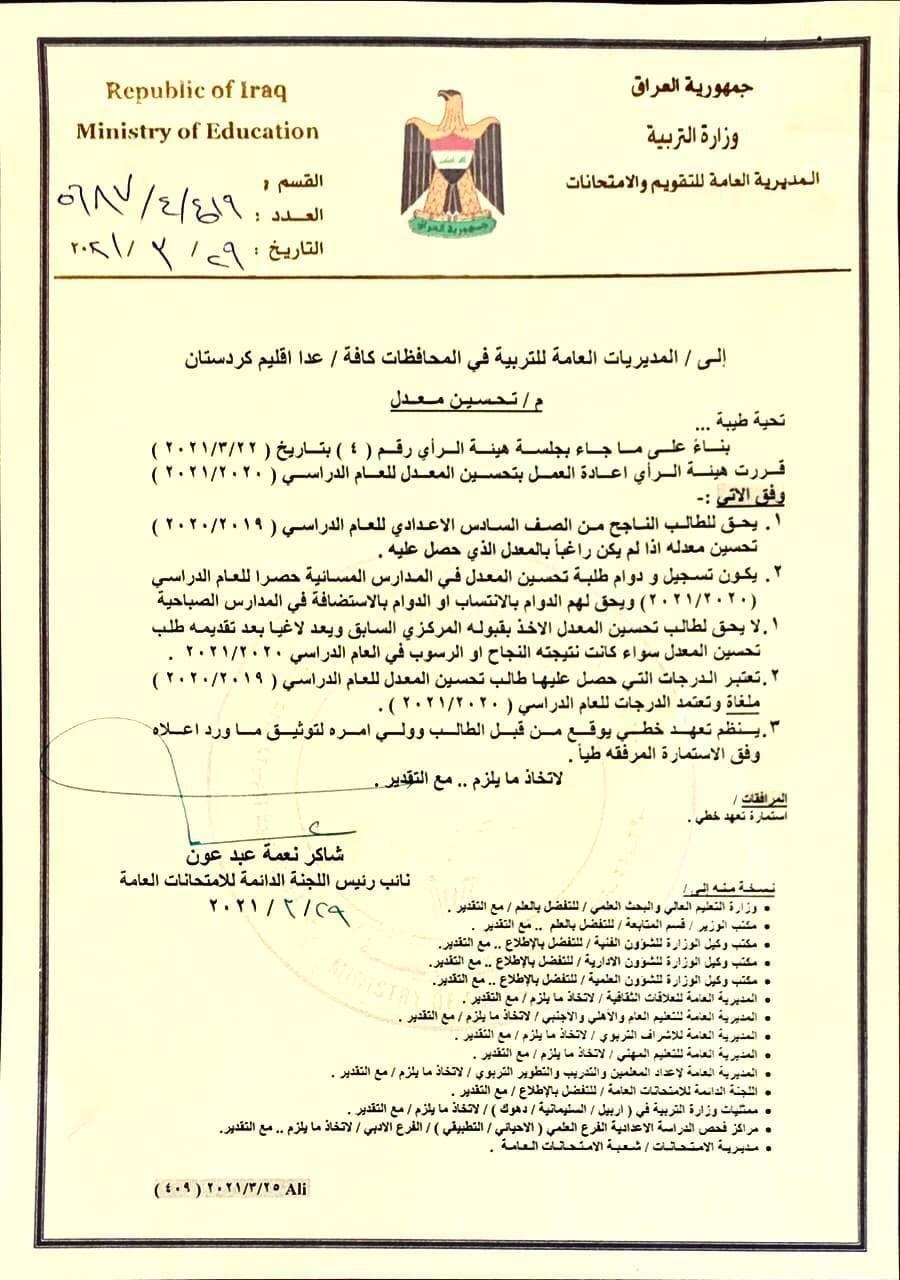 جمهورية العراق
وزارة التربية
المديرية العامة للتقويم والامتحانات
Republic of Iraq
Ministry of Education
القسم :
العدد :
التاريخ : ٢٩ / ٣ / ٢٠٢١
جمهورية العراق
إلى / المديريات العامة للتربية في المحافظات كافة / عدا اقليم كردستان
م / تحسين معدل
تحية طيبة ...
بناءً على ما جاء بجلسة هيئة الرأي رقم ( ٤ ) بتاريخ ( ٢٠٢١/٣/٢٢ )
قررت هيئة الرأي اعادة العمل بتحسين المعدل للعام الدراسي ( ٢٠٢١/٢٠٢٠ )
وفق الاتي :-
١. يحق للطالب الناجح من الصف السادس الاعدادي للعام الدراسي ( ٢٠٢٠/٢٠١٩ )
تحسين معدله اذا لم يكن راغباً بالمعدل الذي حصل عليه .
٢. يكون تسجيل و دوام طلبة تحسين المعدل في المدارس المسائية حصرا للعام الدراسي
(٢٠٢١/٢٠٢٠) ويحق لهم الدوام بالانتساب او الدوام بالاستضافة في المدارس الصباحية
١. لا يحق لطالب تحسين المعدل الاخذ بقبوله المركزي السابق ويعد لاغيا بعد تقديمه طلب
تحسين المعدل سواء كانت نتيجته النجاح او الرسوب في العام الدراسي ٢٠٢١/٢٠٢٠ .
٢. تعتبر الدرجات التي حصل عليها طالب تحسين المعدل للعام الدراسي ( ٢٠٢٠/٢٠١٩ )
ملغاة وتعتمد الدرجات للعام الدراسي ( ٢٠٢١/٢٠٢٠ ) .
٣. ينظم تعهد خطي يوقع من قبل الطالب وولي امره لتوثيق ما ورد اعلاه
وفق الاستمارة المرفقه طياً .
لاتخاذ ما يلزم .. مع التقدير .
المرافقات /
استمارة تعهد خطي .
شاكر نعمة عبد عون
نائب رئيس اللجنة الدائمة للامتحانات العامة
٢٩ / ٣ / ٢٠٢١
نسخة منه إلى /
• وزارة التعليم العالي والبحث العلمي / للتفضل بالعلم / مع التقدير .
• مكتب الوزير / قسم المتابعة / للتفضل بالعلم .. مع التقدير .
• مكتب وكيل الوزارة للشؤون الفنية / للتفضل بالإطلاع .. مع التقدير.
• مكتب وكيل الوزارة للشؤون الادارية / للتفضل بالإطلاع .. مع التقدير.
• مكتب وكيل الوزارة للشؤون العلمية / للتفضل بالإطلاع .. مع التقدير.
• المديرية العامة للعلاقات الثقافية / لاتخاذ ما يلزم / مع التقدير .
• المديرية العامة للتعليم العام والأهلي والاجنبي / لاتخاذ ما يلزم / مع التقدير .
• المديرية العامة للاشراف التربوي / لاتخاذ ما يلزم / مع التقدير .
• المديرية العامة للتعليم المهني / لاتخاذ ما يلزم / مع التقدير .
• المديرية العامة لاعداد المعلمين والتدريب والتطوير التربوي / لاتخاذ ما يلزم / مع التقدير .
• اللجنة الدائمة للامتحانات العامة / للتفضل بالإطلاع / مع التقدير .
• ممثليات وزارة التربية في ( اربيل / السليمانية / دهوك ) / لاتخاذ ما يلزم / مع التقدير .
• مراكز فحص الدراسة الاعدادية الفرع العلمي ( الاحيائي / التطبيقي ) / الفرع الادبي / لاتخاذ ما يلزم .. مع التقدير.
• مديرية الامتحانات / شعبة الامتحانات العامة .
Ali ٢٠٢١/٣/٢٥ ( ٤٠٩ )